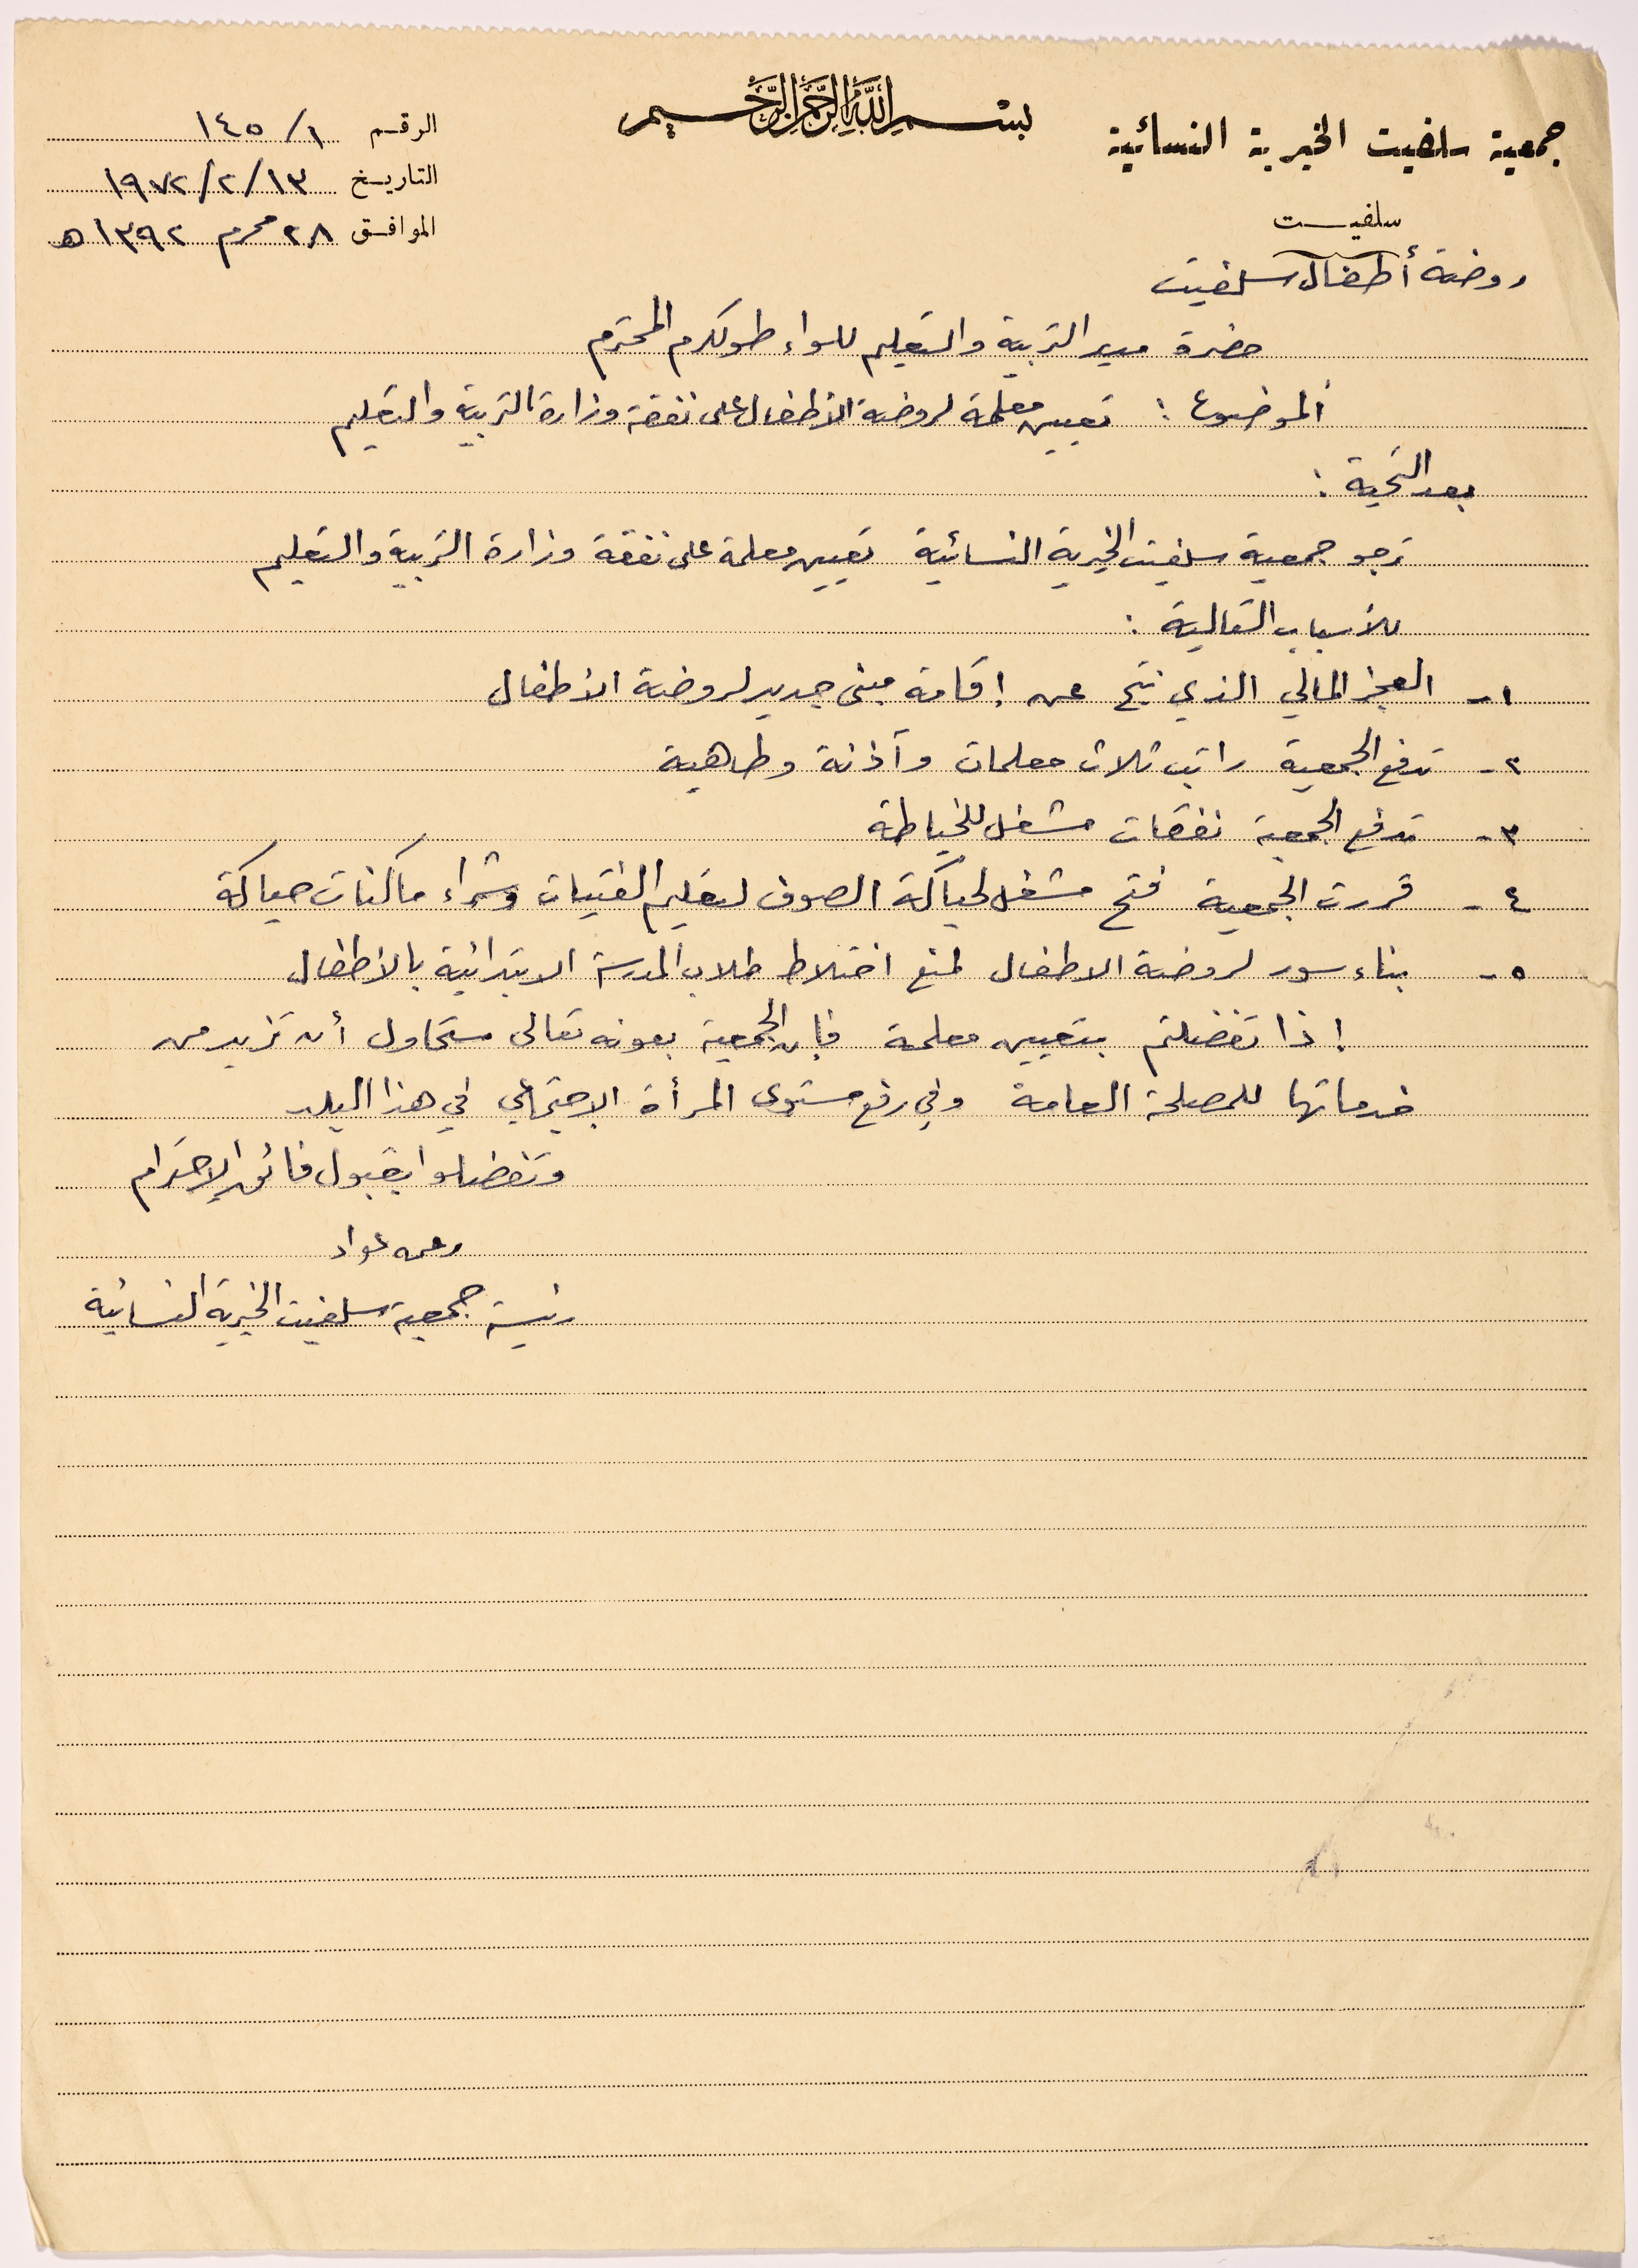 بسم الله الرحمن الرحيم
جمعية سلفيت الخيرية النسائية
سلفيت
الرقم ١٤٥/١
التاريخ ١٩٧٢/٢/١٣
الموافق ٢٨ محرم ١٣٩٢ هـ
روضة أطفال سلفيت
حضرة مدير التربية والتعليم للواء طولكرم المحترم
الموضوع : تعيين معلمة لروضة الأطفال على نفقة وزارة التربية والتعليم
بعد التحية :
ترجو جمعية سلفيت الخيرية النسائية تعيين معلمة على نفقة وزارة التربية والتعليم
للأسباب التالية :
١- العجز المالي الذي نتج عن إقامة مبنى جديد لروضة الأطفال
٢- تدفع الجمعية راتب ثلاث معلمات وآذنة وطاهية
٣- تدفع الجمعية نفقات مشغل للخياطة
٤- قررت الجمعية فتح مشغل لحياكة الصوف لتعليم الفتيات وشراء ماكنات حياكة
٥- بناء سور لروضة الاطفال لمنع اختلاط طلاب المدرسة الابتدائية بالأطفال
إذا تفضلتم بتعيين معلمة فإن الجمعية بعونه تعالى ستحاول أن تزيد من
خدماتها للمصلحة العامة وفي رفع مستوى المرأة الإجتماعي في هذا البلد
وتفضلوا بقبول فائق الإحترام
عواد
رئيسة جمعية سلفيت الخيرية النسائية